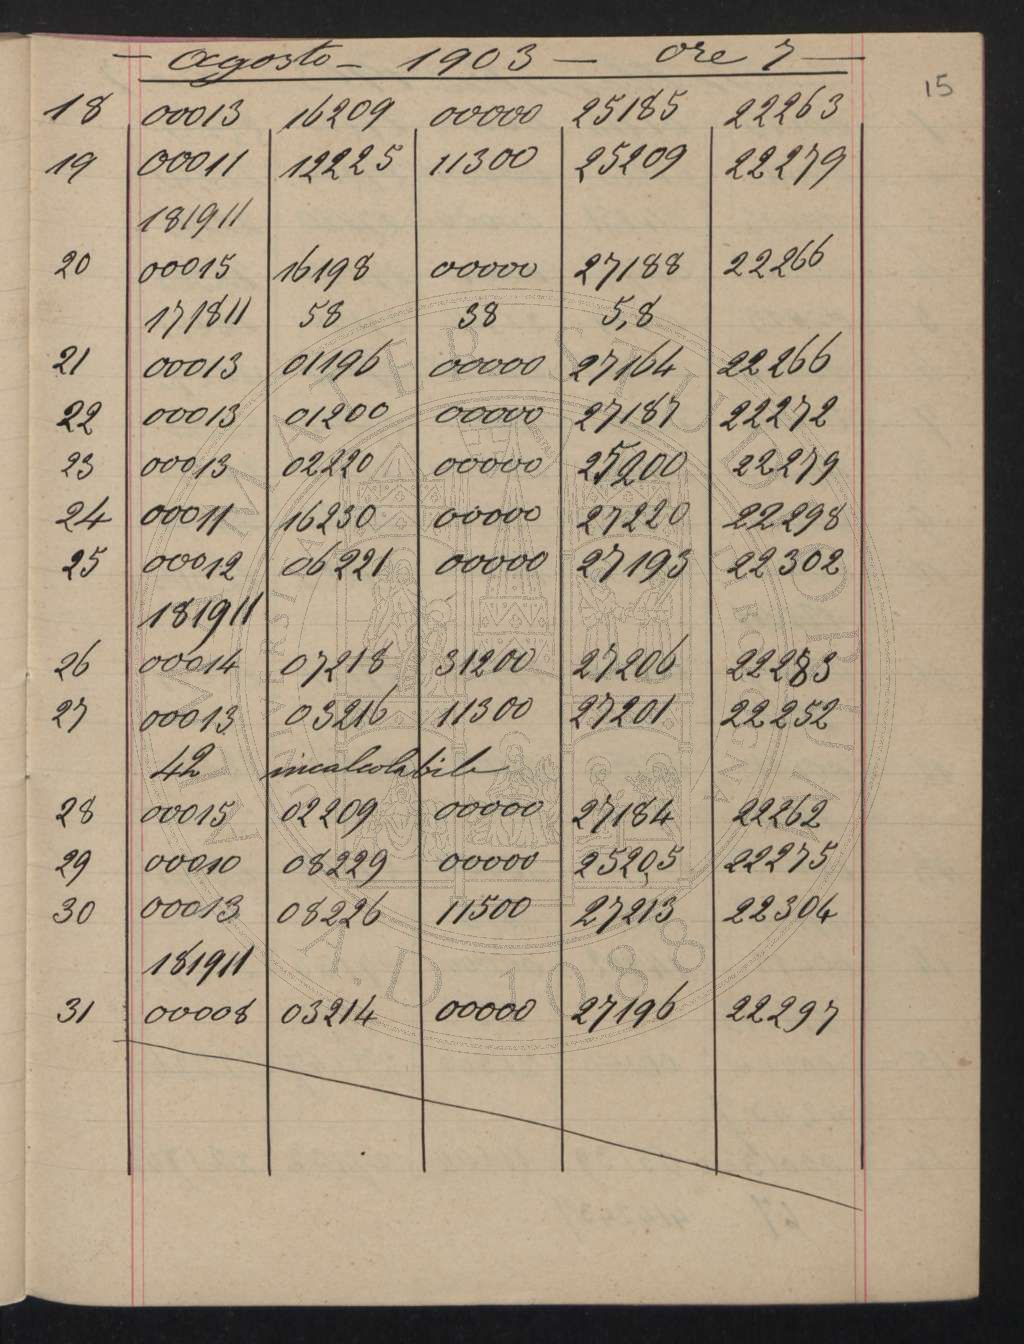 — agosto — 1903 — ore 7 —
15
18 00013 16209 00000 25185 22263
19 00011 12225 11300 25209 22279
181911
20 00015 16198 00000 27188 22266
171811 58 38 5,8
21 00013 01196 00000 27164 22266
22 00013 01200 00000 27187 22272
23 00013 02220 00000 25200 22279
24 00011 16230 00000 27220 22298
25 00012 06221 00000 27193 22302
181911
26 00014 07218 31200 27206 22283
27 00013 03216 11300 27201 22252
42 incalcolabile
28 00015 02209 00000 27184 22262
29 00010 08229 00000 25205 22275
30 00013 08226 11500 27213 22304
181911
31 00008 03214 00000 27196 22297
ALMA MATER STUDIORUM
A.D. 1088